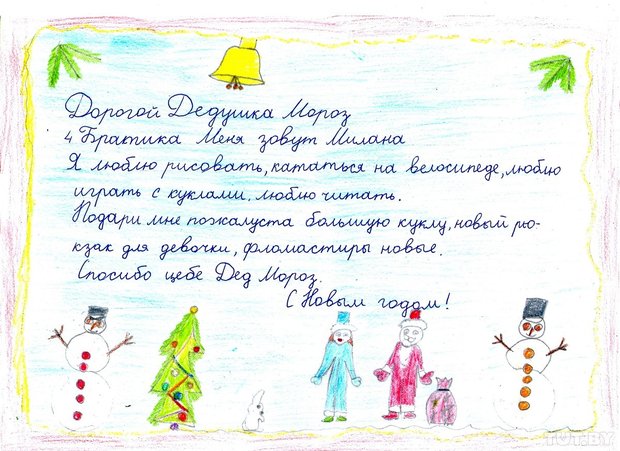 Дорогой Дедушка Мороз
4 братика Меня зовут Милана
Я люблю рисовать, кататься на велосипеде, люблю
играть с куклами. люблю читать.
Подари мне пожалуста большую куклу, новый рю-
кзак для девочки, фломастиры новые.
Спосибо цебе Дед Мороз.
С Новым годом!
TUT.BY